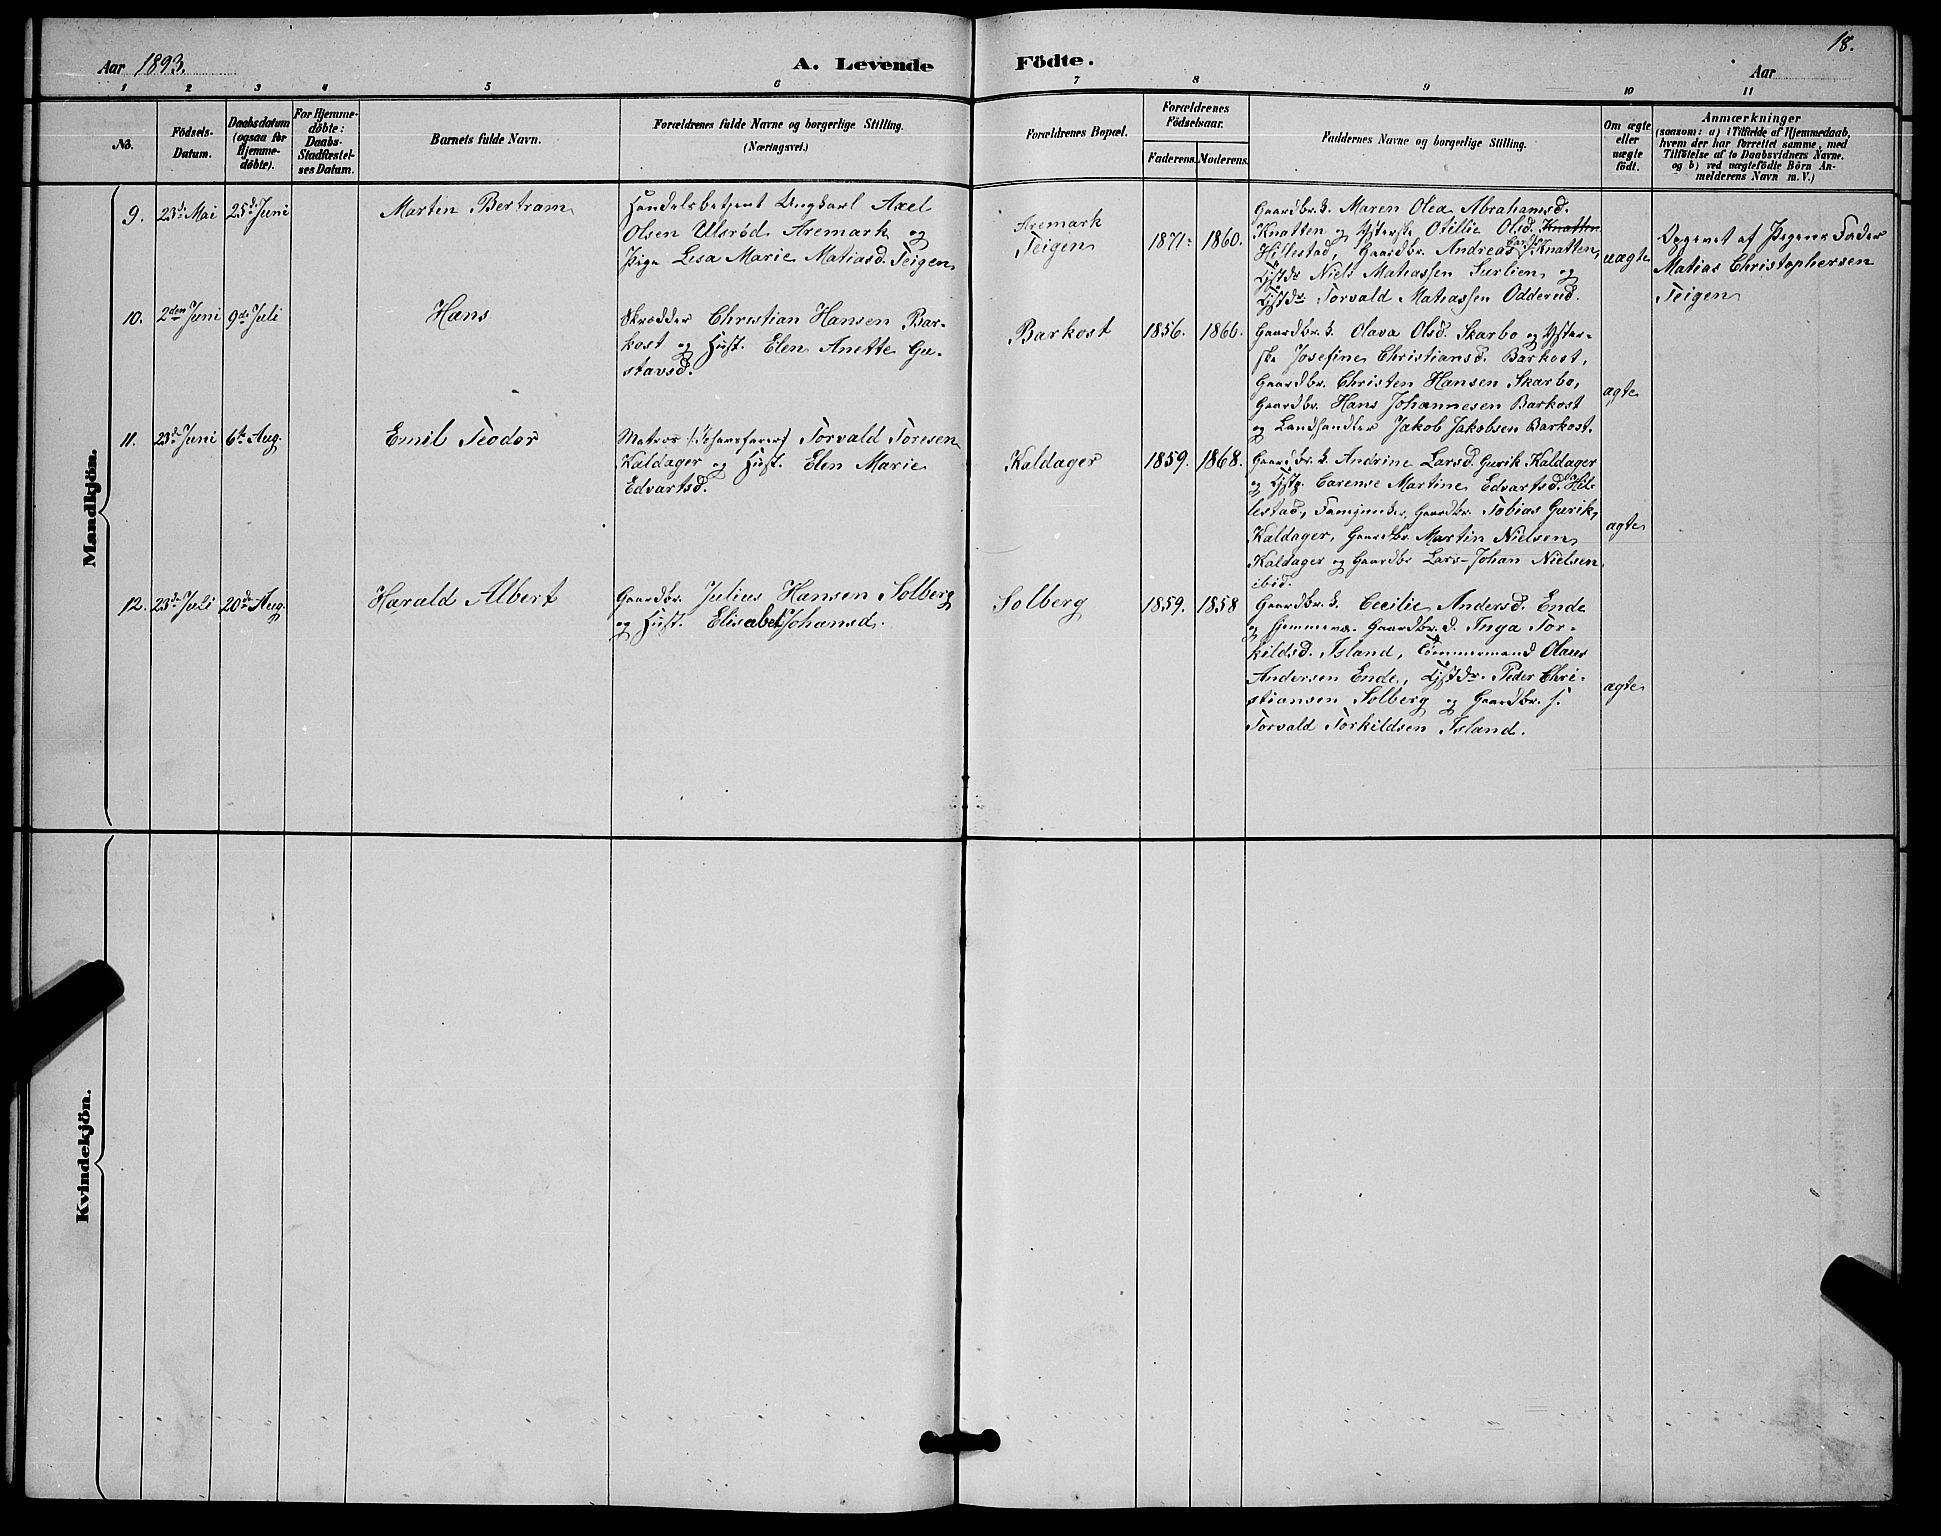 Aar 1893.
A. Levende Födte.
18.
Aar
1 2 3 4 5 6 7 8 9 10 11
No.
Födsels-
Datum.
Daabsdatum
(ogsaa for
Hjemme-
döbte).
For Hjemme-
döbte:
Daabs-
Stadfæstel-
ses Datum.
Barnets fulde Navn.
Forældrenes fulde Navne og borgerlige Stilling.
(Næringsvei.)
Forældrenes Bopæl.
Forældrenes
Födselsaar.
Faderens. Moderens.
Faddernes Navne og borgerlige Stilling.
Om ægte
eller
uægte
födt.
Anmærkninger
(saasom: a) i Tilfælde af Hjemmedaab,
hvem der har forrettet samme, med
Tilföielse af to Daabsvidners Navne.
og b) ved uægtefödte Börn An-
melderens Navn m. V.)
Mandkjön.
9. 23de Mai 25de Juni
Martin Bertram
Handelsbetjent Ungkarl Axel
Olsen Ulsröd Aremark og
Pige Lisa Marie Matiasd. Teigen
Aremark
Teigen
1871. 1860.
Gaardbr. k. Maren Olea Abrahamsd.
Knatten og Ysterske Otillie Olsd. Knatten
Hillestad, Gaardbr. Andreas Knatten,
Niels Matiassen Surlien og
Torvald Matiassen Odderud.
uægte
Opgivet af Pigens Fader
Matias Christophersen
Teigen
10. 2den Juni 9de Juli
Hans
Skrædder Christian Hansen Bar-
kost og Hust. Elen Anette Gu-
stavsd.
Barkost
1856. 1866.
Gaardbr. k. Olava Olsd. Skarbo og Yster-
ske Josefine Christiansd. Barkost,
Gaardbr. Christen Hansen Skarbo,
Gaardbr. Hans Johannesen Barkost
og Landhandler Jakob Jakobsen Barkost.
ægte
11. 23de Juni 6te Aug.
Emil Teodor
Matros Torvald Toresen
Kaldager og Hust. Elen Marie
Edvartsd.
Kaldager
1859. 1868.
Gaardbr. k. Andrine Larsd. Gurik Kaldager
og Carense Martine Edvartsd. Hil-
lestad, Gaardbr. Tobias Gurik,
Kaldager, Gaardbr. Martin Nielsen
Kaldager og Gaardbr Lars-Johan Nielsen
ibid.
ægte
12. 23de Juli 20de Aug.
Harald Albert
Gaardbr. Julius Hansen Solberg
og Hust. Elisabet Johansd.
Solberg
1859. 1858
Gaardbr. k. Cecilie Andersd. Ende
og hjemmeva. Gaardbr. d. Inga Tor-
kildsd. Island, Tömmermand Olaus
Andersen Ende, Peder Chri-
stiansen Solberg og Gaardbr. s.
Torvald Torkildsen Island.
ægte
Kvindekjön.